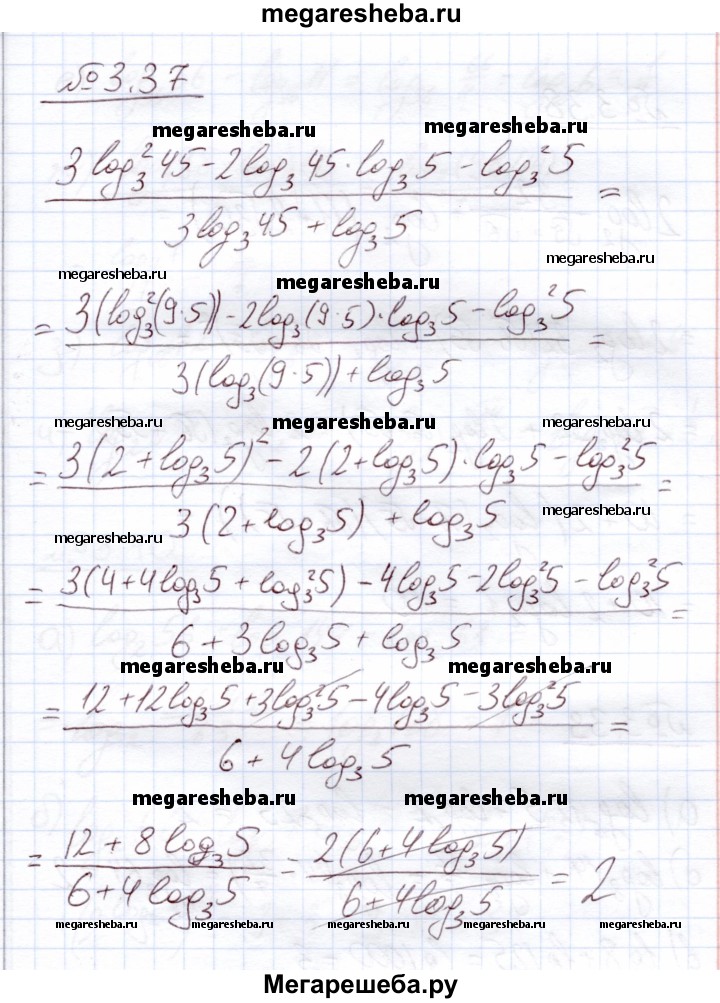 megaresheba.ru
№3.37
megaresheba.ru megaresheba.ru
3log₃²45-2log₃45·log₃5-log₃²5
=
3log₃45+log₃5
megaresheba.ru megaresheba.ru megaresheba.ru
= 3(log₃²(9·5))-2log₃(9·5)·log₃5-log₃²5 =
3(log₃(9·5))+log₃5
megaresheba.ru megaresheba.ru megaresheba.ru
= 3(2+log₃5)²-2(2+log₃5)·log₃5-log₃²5 =
3(2+log₃5)+log₃5
megaresheba.ru megaresheba.ru megaresheba.ru
= 3(4+4log₃5+log₃²5)-4log₃5-2log₃²5-log₃²5 =
6+3log₃5+log₃5
megaresheba.ru megaresheba.ru
= 12+12log₃5+3log₃²5-4log₃5-3log₃²5 =
6+4log₃5
megaresheba.ru megaresheba.ru
= 12+8log₃5 = 2(6+4log₃5) = 2
6+4log₃5 6+4log₃5
megaresheba.ru megaresheba.ru megaresheba.ru megaresheba.ru
Мегарешеба.ру